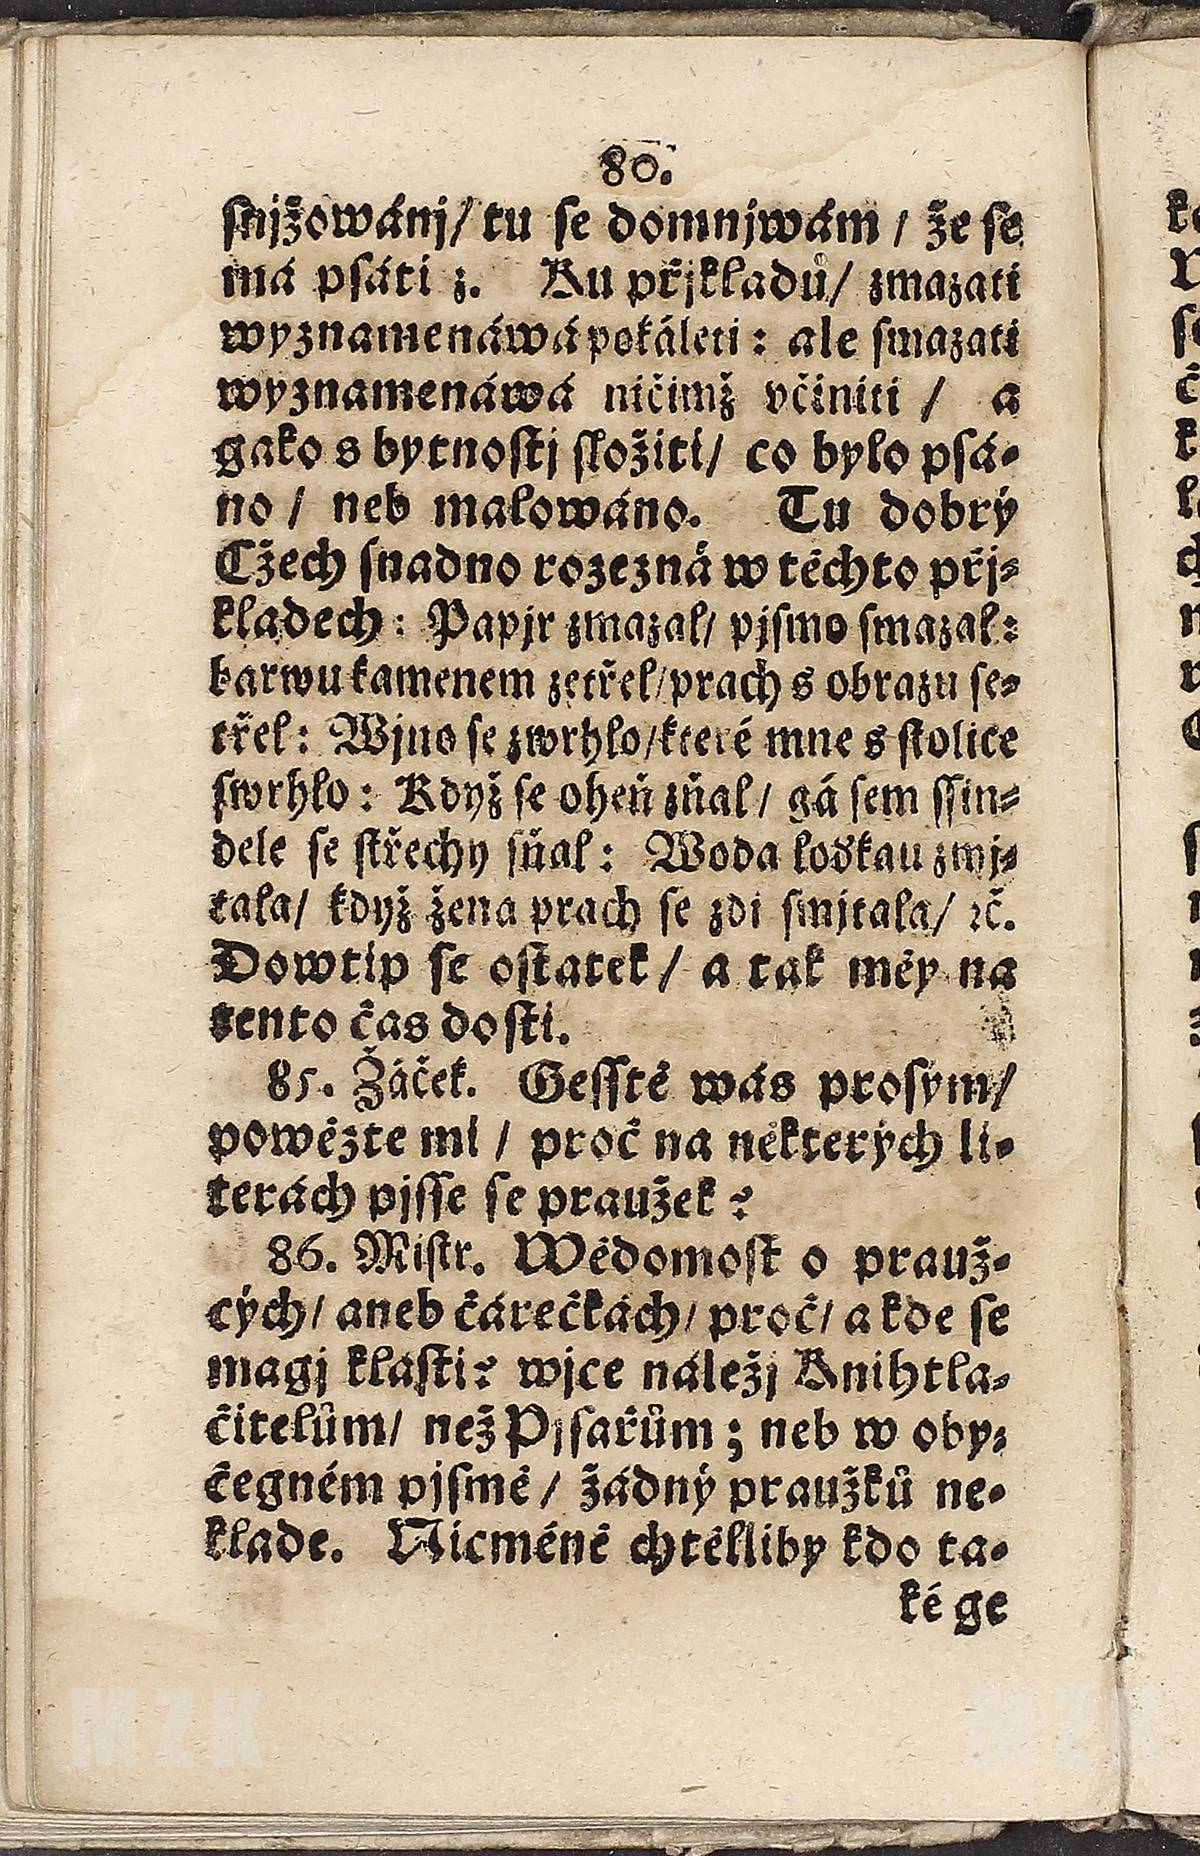 80.
snjžowánj/ tu se domnjwám / že se
má psáti z. Ku přjkladů/ zmazati
wyznamenáwá pokáleti : ale smazati
wyznamenáwá ničimž včiniti / a
gako s bytnostj složiti/ co bylo psá-
no / neb malowáno. Tu dobrý
Cžech snadno rozezná w těchto přj-
kladech : Papjr zmazal/ pjsmo smazal :
barwu kamenem zetřel/ prach s obrazu se-
třel : Wjno se zwrhlo/ které mne s stolice
swrhlo : Když se oheň zňal / gá sem ssin-
dele se střechy sňal : Woda loďkau zmj-
tala/ když žena prach se zdi smjtala/ ꝛč.
Dowtip se ostatek / a tak měy na
tento čas dosti.
85. Žáček. Gesstě wás prosym/
powězte mi / proč na některých li-
terách pjsse se praužek ?
86. Mistr. Wědomost o prauž-
cých/ aneb čárečkách/ proč/ a kde se
magj klasti? wjce náležj Knihtla-
čitelům/ než Pjsařům ; neb w oby-
čegném pjsmě / žádný praužků ne-
klade. Nicméně chtělliby kdo ta-
ké ge
ka
se
č
k
la
ch
n
r
MZK